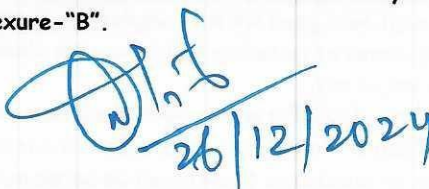 exure-“B”.
26/12/2024